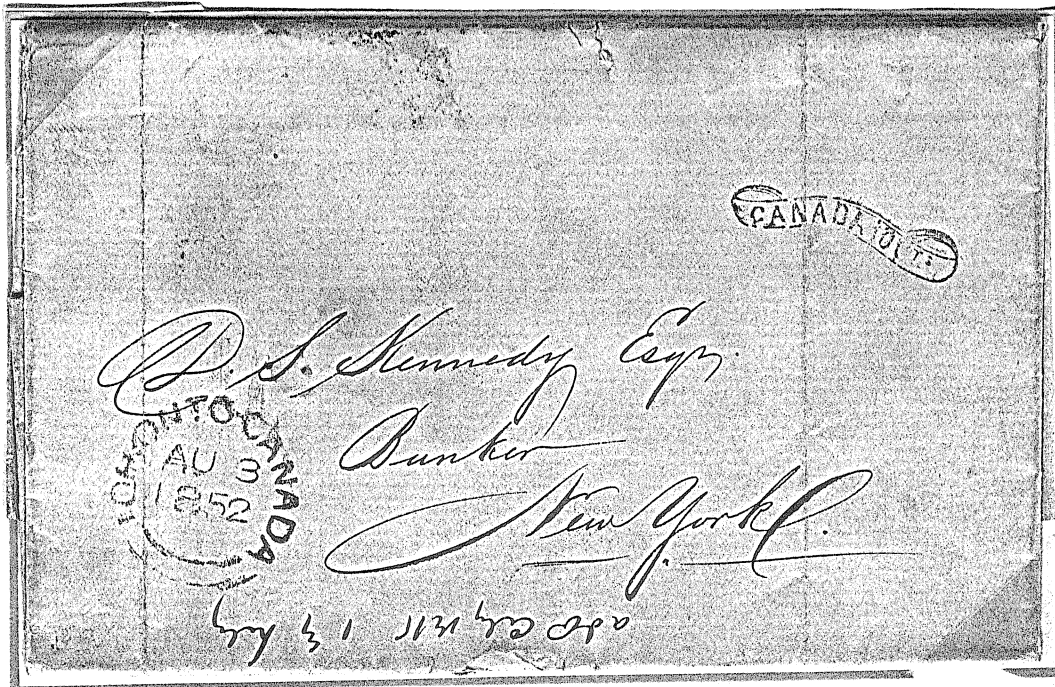 CANADA 10 CTS
D. S. Kennedy Esqr.
Banker
New York
TORONTO CANADA
AU 3
1852